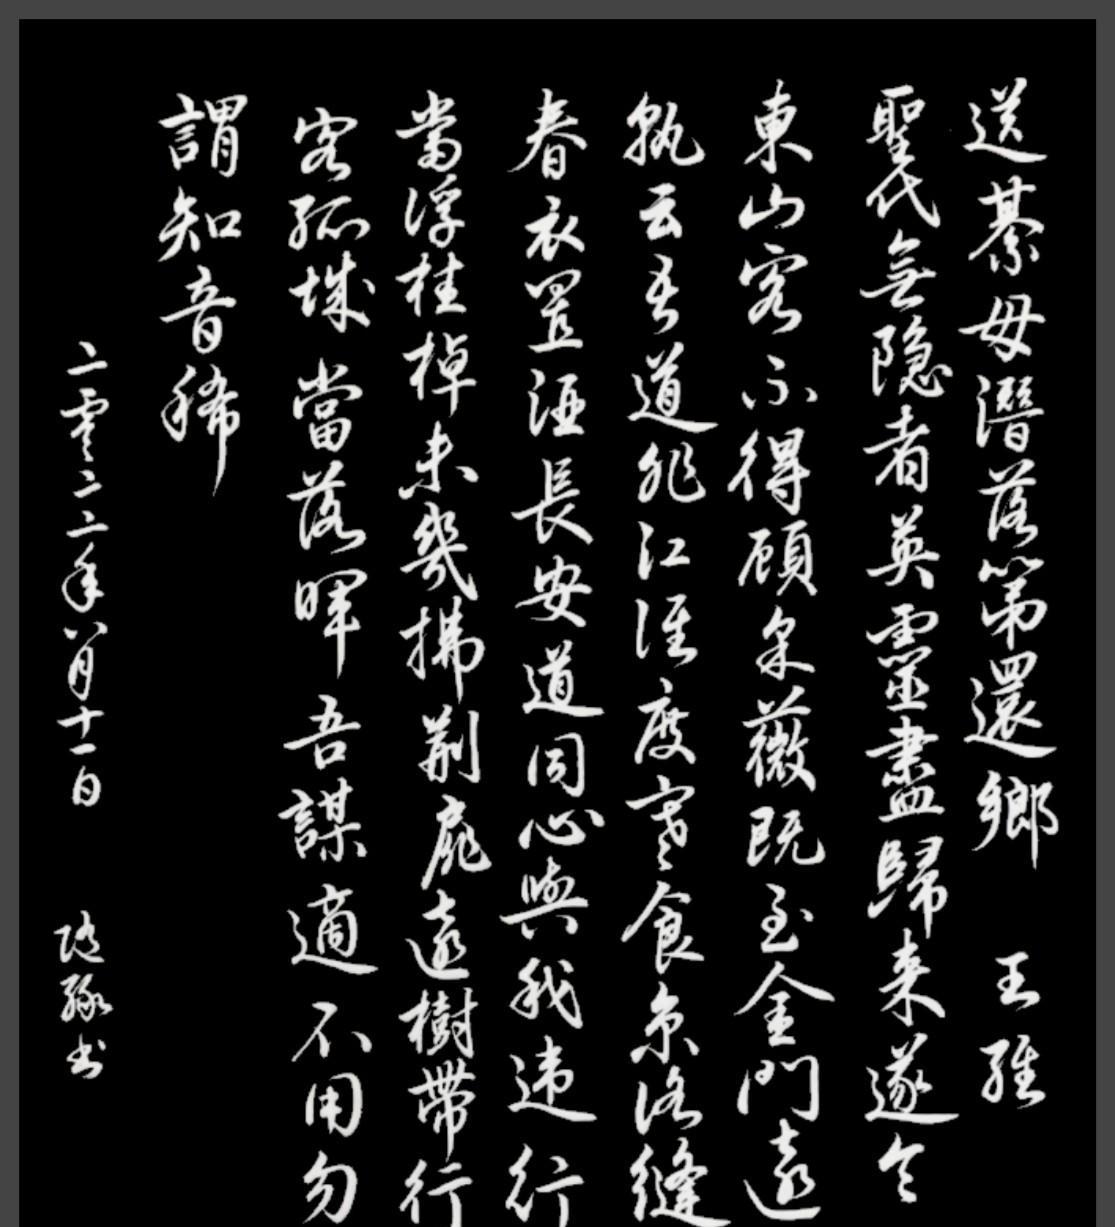 送綦毋潛落第還鄉 王維
聖代無隐者英靈盡歸来遂令
東山客不得顧采薇既至金門遠
孰云吾道非江淮度寒食京洛縫
春衣置酒長安道同心與我违行
當浮桂棹未幾拂荆扉遠樹帶行
客孤城當落暉吾謀適不用勿
謂知音稀
二零二二年八月十一日 随缘书